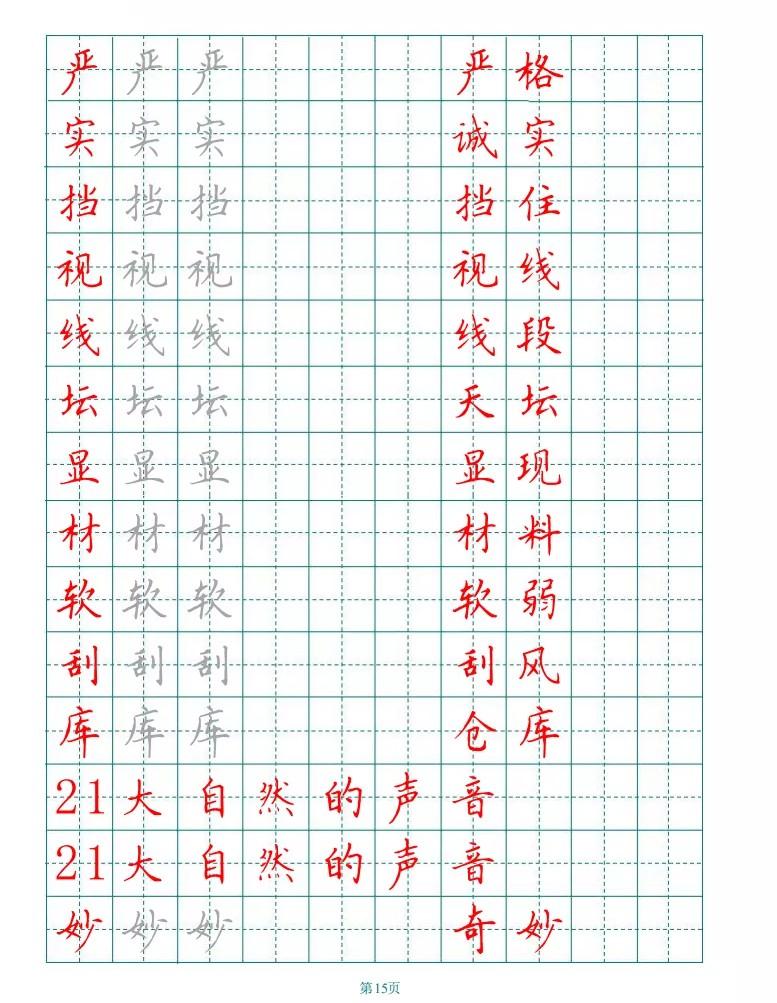 严 严 严 严 格
实 实 实 诚 实
挡 挡 挡 挡 住
视 视 视 视 线
线 线 线 线 段
坛 坛 坛 天 坛
显 显 显 显 现
材 材 材 材 料
软 软 软 软 弱
刮 刮 刮 刮 风
库 库 库 仓 库
21 大 自 然 的 声 音
21 大 自 然 的 声 音
妙 妙 妙 奇 妙
第15页